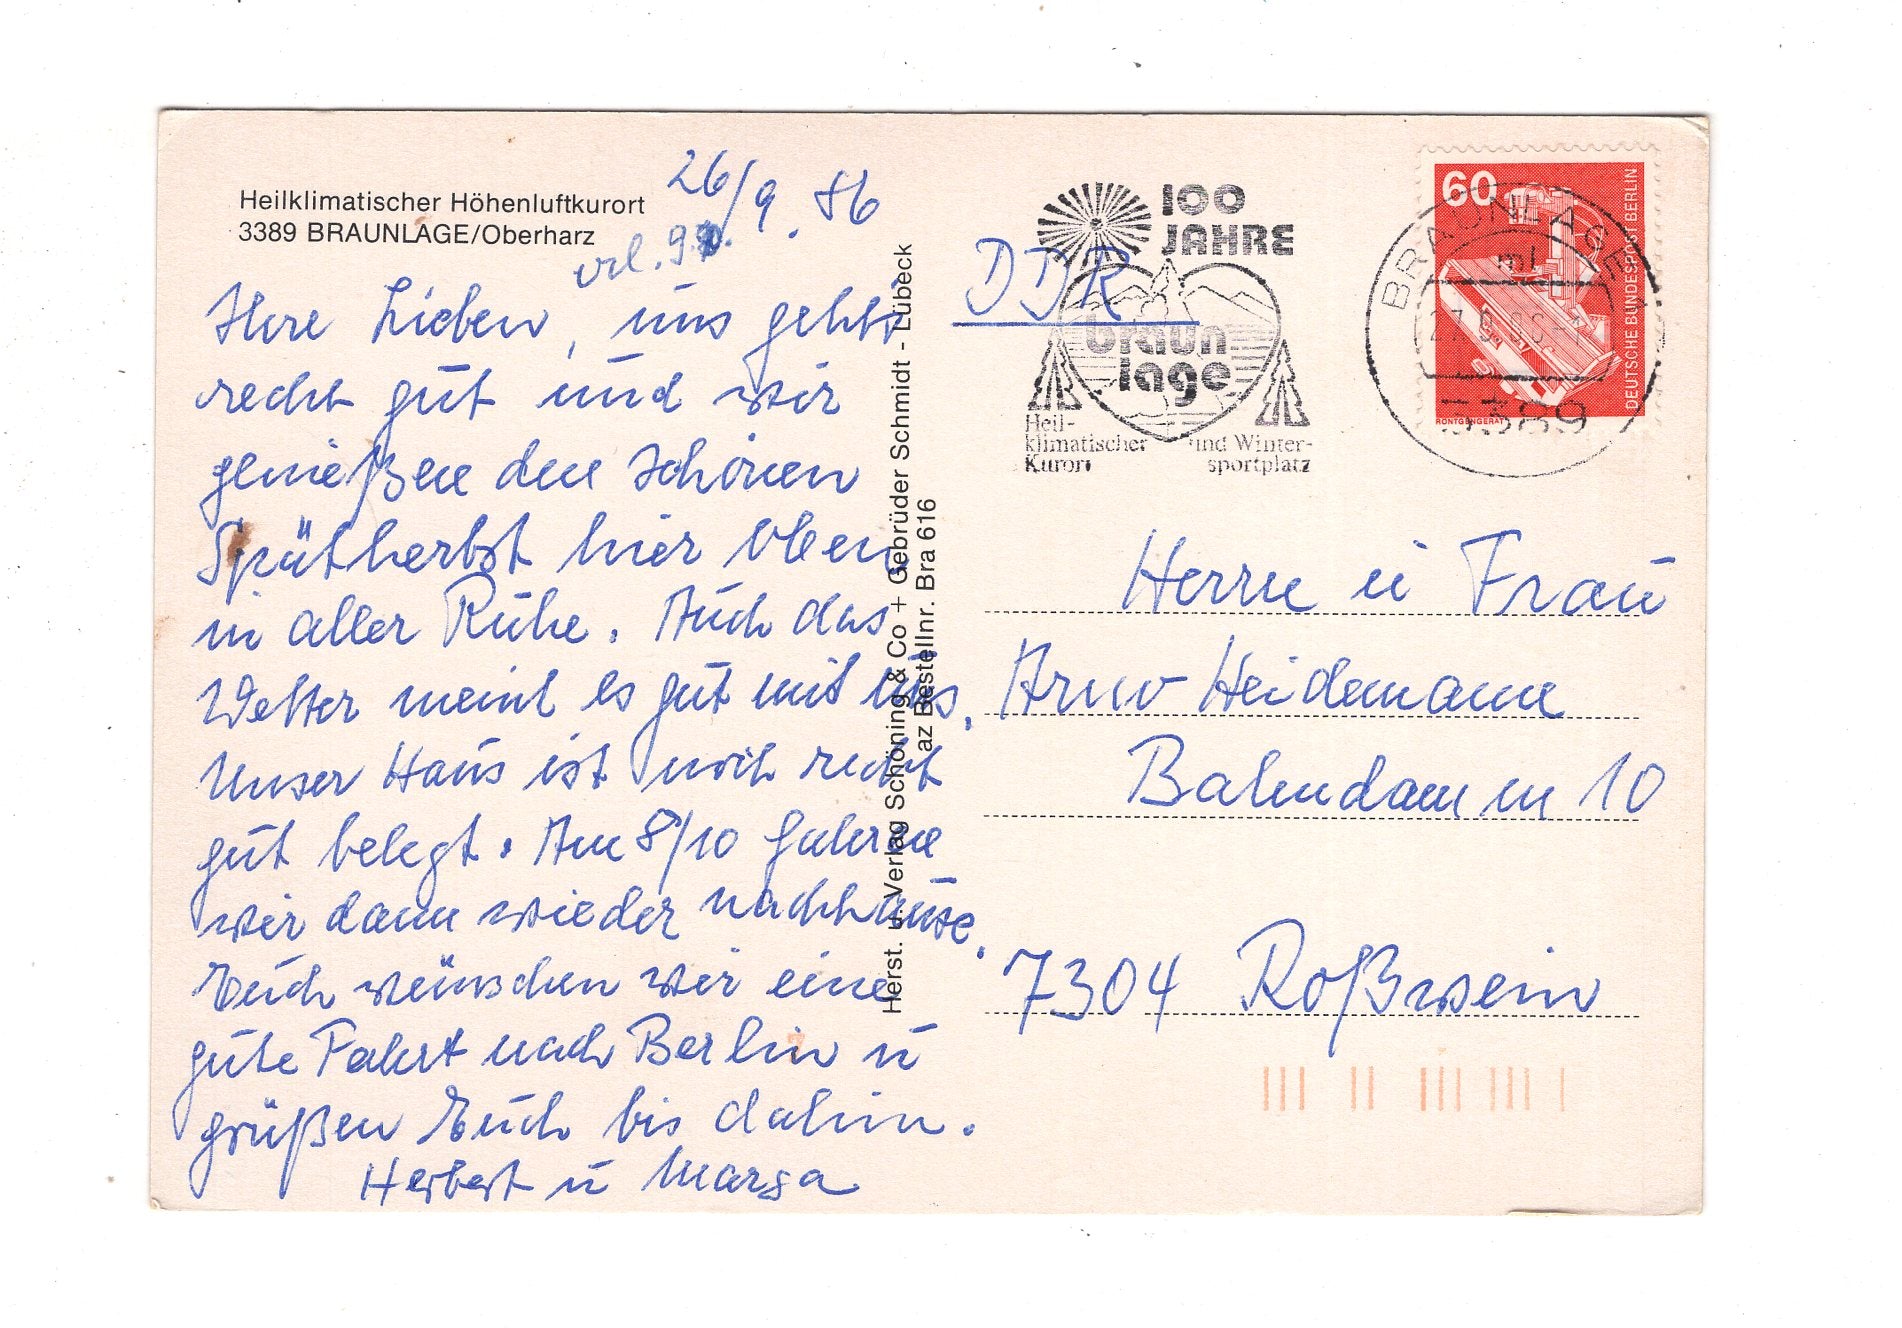 Heilklimatischer Höhenluftkurort
3389 BRAUNLAGE/Oberharz
26/9. 86
Ihre Lieben, uns gehts
recht gut und wir
genießen den schönen
Spätherbst hier oben
in aller Ruhe. Auch das
Wetter meint es gut mit uns.
Unser Haus ist noch recht
gut belegt. Am 8/10 fahren
wir dann wieder nachhause.
Euch wünschen wir eine
gute Fahrt nach Berlin u
grüßen Euch bis dahin.
Herbert u Marga
Herst. u. Verlag Schöning & Co + Gebrüder Schmidt - Lübeck
az Bestellnr. Bra 616
DDR
100
JAHRE
braun
lage
Heil-
klimatischer
Kurort
und Winter-
sportplatz
BRAUNLAGE 1
ml
27.9.86-1
3389
60
DEUTSCHE BUNDESPOST BERLIN
RÖNTGENGERÄT
Herrn u Frau
Arno Heidemann
Bahndamm 10
7304 Roßwein